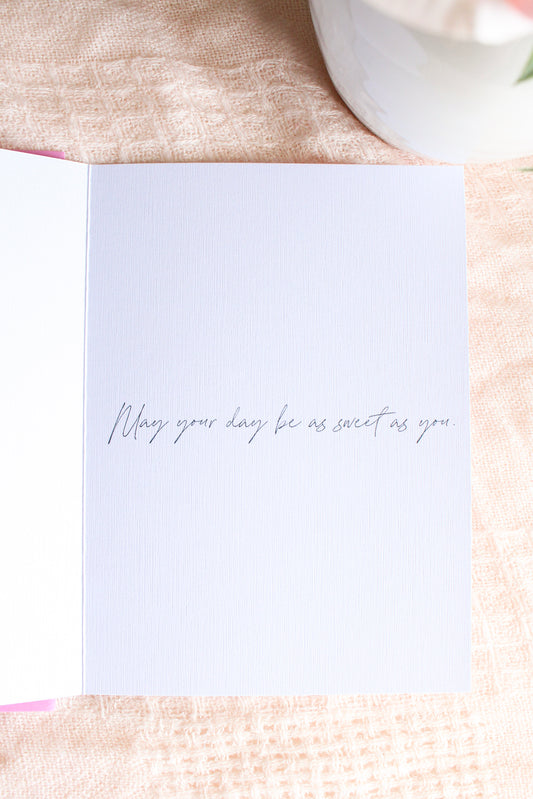 May your day be as sweet as you.